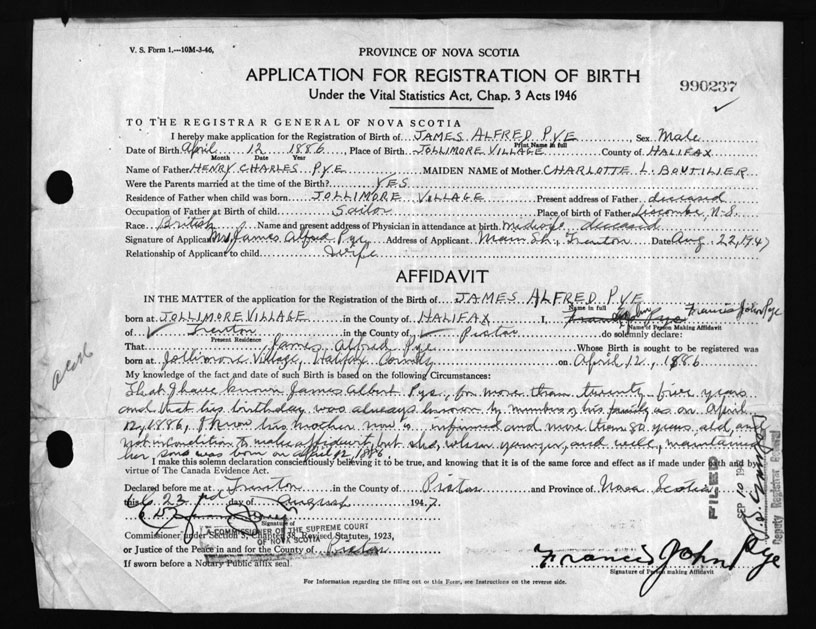 V. S. Form 1.—10M-3-46,
PROVINCE OF NOVA SCOTIA
APPLICATION FOR REGISTRATION OF BIRTH
990237
Under the Vital Statistics Act, Chap. 3 Acts 1946
TO THE REGISTRAR GENERAL OF NOVA SCOTIA
I hereby make application for the Registration of Birth of JAMES ALFRED PYE, Sex Male
Print Name in full
Date of Birth April 12 1886, Place of Birth JOLLIMORE VILLAGE County of HALIFAX
Month Date Year
Name of Father HENRY CHARLES PYE MAIDEN NAME of Mother CHARLOTTE L. BOUTILIER
Were the Parents married at the time of the Birth? YES
Residence of Father when child was born JOLLIMORE VILLAGE Present address of Father deceased
Occupation of Father at Birth of child Sailor Place of birth of Father Liscombe, N-S.
Race British Name and present address of Physician in attendance at birth deceased
Signature of Applicant Mrs James Alfred Pye Address of Applicant Main St., Trenton Date Aug. 22, 1947
Relationship of Applicant to child wife
AFFIDAVIT
IN THE MATTER of the application for the Registration of the Birth of JAMES ALFRED PYE
Name in full
born at JOLLIMORE VILLAGE in the County of HALIFAX I, Francis John Pye
Name of Person Making Affidavit
of Trenton in the County of Pictou do solemnly declare:
Present Residence
That James Alfred Pye Whose Birth is sought to be registered was
born at Jollimore Village, Halifax County on April 12, 1886
My knowledge of the fact and date of such Birth is based on the following Circumstances:
That I have known James Albert Pye, for more than twenty five years
and that his birthday was always known by members of his family as on April
12, 1886, I know his mother now is infirmed and more than 80 years old, and
not in condition to make affidavit, but she, when younger, and well, maintained
her son was born on April 12, 1886
I make this solemn declaration conscientiously believing it to be true, and knowing that it is of the same force and effect as if made under oath and by
virtue of The Canada Evidence Act.
Declared before me at Trenton in the County of Pictou and Province of Nova Scotia
this 23rd day of August 1947
Signature of
A COMMISSIONER OF THE SUPREME COURT
OF NOVA SCOTIA
Commissioner under Section 5, Chapter 38, Revised Statutes, 1923,
or Justice of the Peace in and for the County of Pictou
If sworn before a Notary Public affix seal.
Francis John Pye
Signature of Person making Affidavit
For Information regarding the filling out of this Form, see Instructions on the reverse side.
FILED
SEP 10
Deputy Registrar General